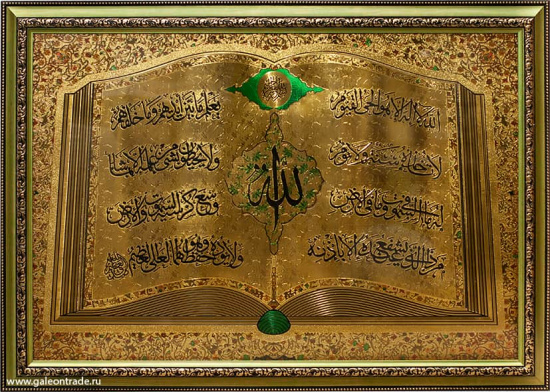 الله لا إله إلا هو الحي القيوم
لا تأخذه سنة ولا نوم
له ما في السموات وما في الأرض
من ذا الذي يشفع عنده إلا بإذنه
يعلم ما بين أيديهم وما خلفهم
ولا يحيطون بشيء من علمه إلا بما شاء
وسع كرسيه السموات والأرض
ولا يؤده حفظهما وهو العلي العظيم
الله
www.galeontrade.ru